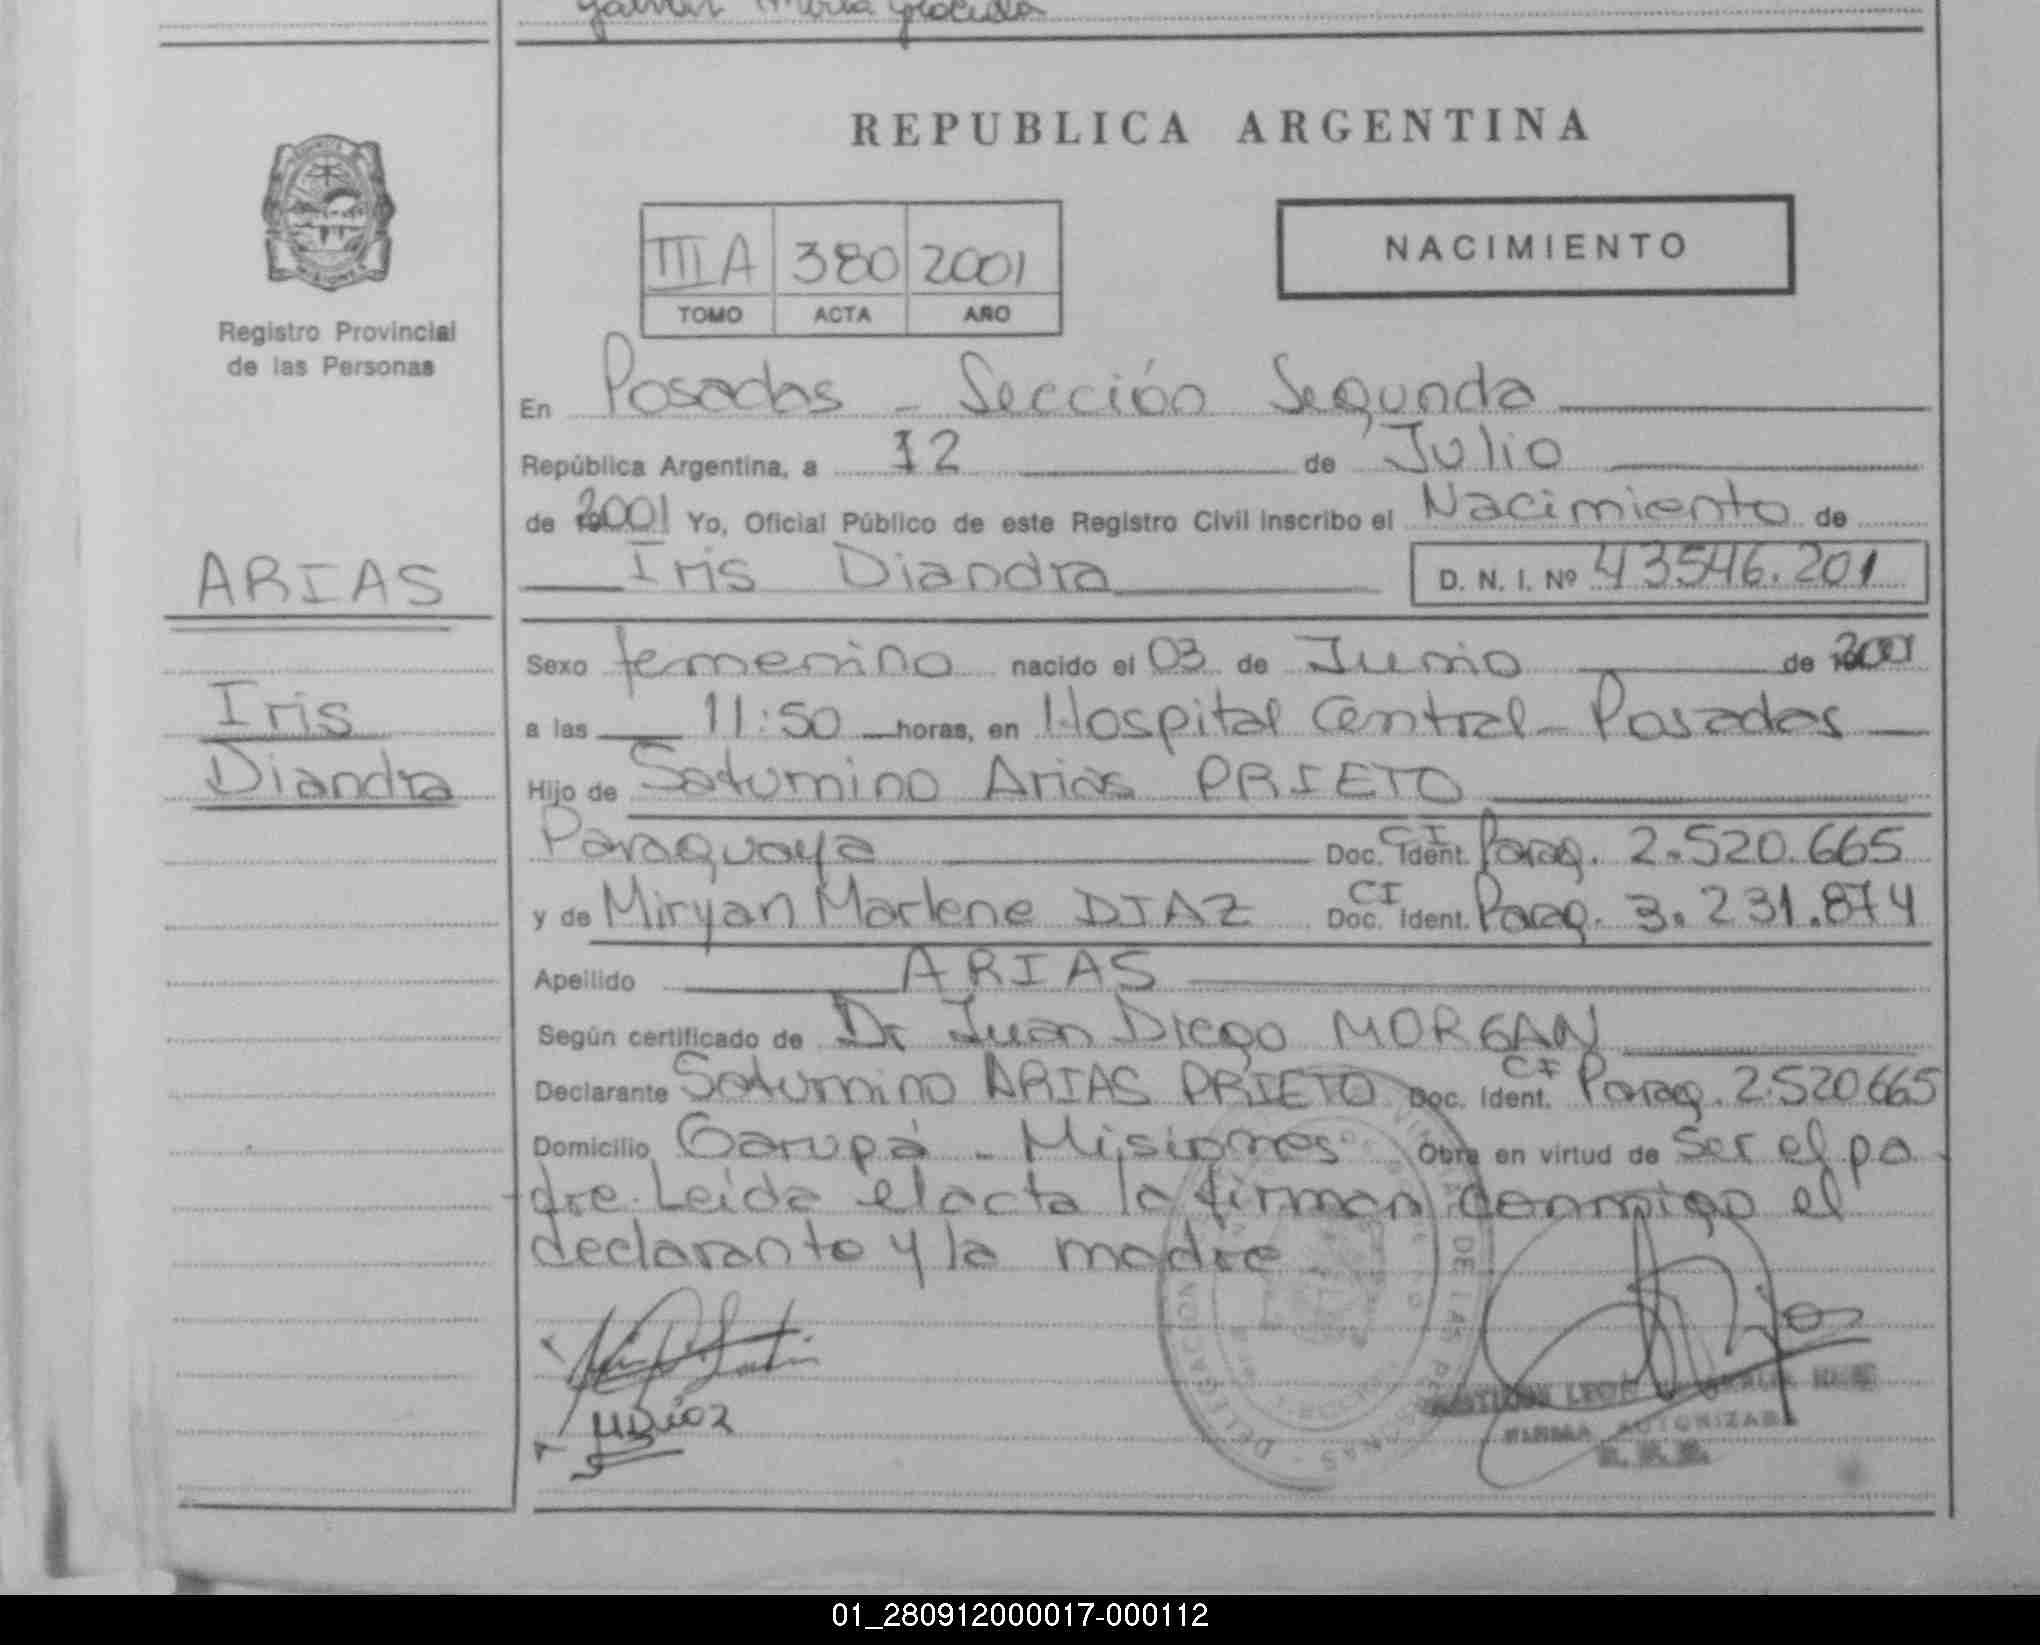 REPUBLICA ARGENTINA
III A 380 2001
TOMO ACTA AÑO
NACIMIENTO
Registro Provincial
de las Personas
En Posadas - Sección Segunda
República Argentina, a 12 de Julio
de 2001 Yo, Oficial Público de este Registro Civil inscribo el Nacimiento de
Iris Diandra D. N. I. Nº 43546.201
ARIAS
Iris
Diandra
Sexo femenino nacido el 03 de Junio de 2001
a las 11:50 horas, en Hospital Central - Posadas
Hijo de Saturnino Arias PRIETO
Paraguaya Doc. Ident. CI Parag. 2.520.665
y de Miryan Marlene DIAZ Doc. Ident. CI Parag. 3.231.874
Apellido ARIAS
Según certificado de Dr Juan Diego MORGAN
Declarante Saturnino ARIAS PRIETO Doc. Ident. CI Parag. 2.520665
Domicilio Garupá - Misiones Obra en virtud de ser el pa
dre. Leida el acta la firman conmigo el
declarante y la madre
MDiaz
FIRMA AUTORIZADA
01_280912000017-000112